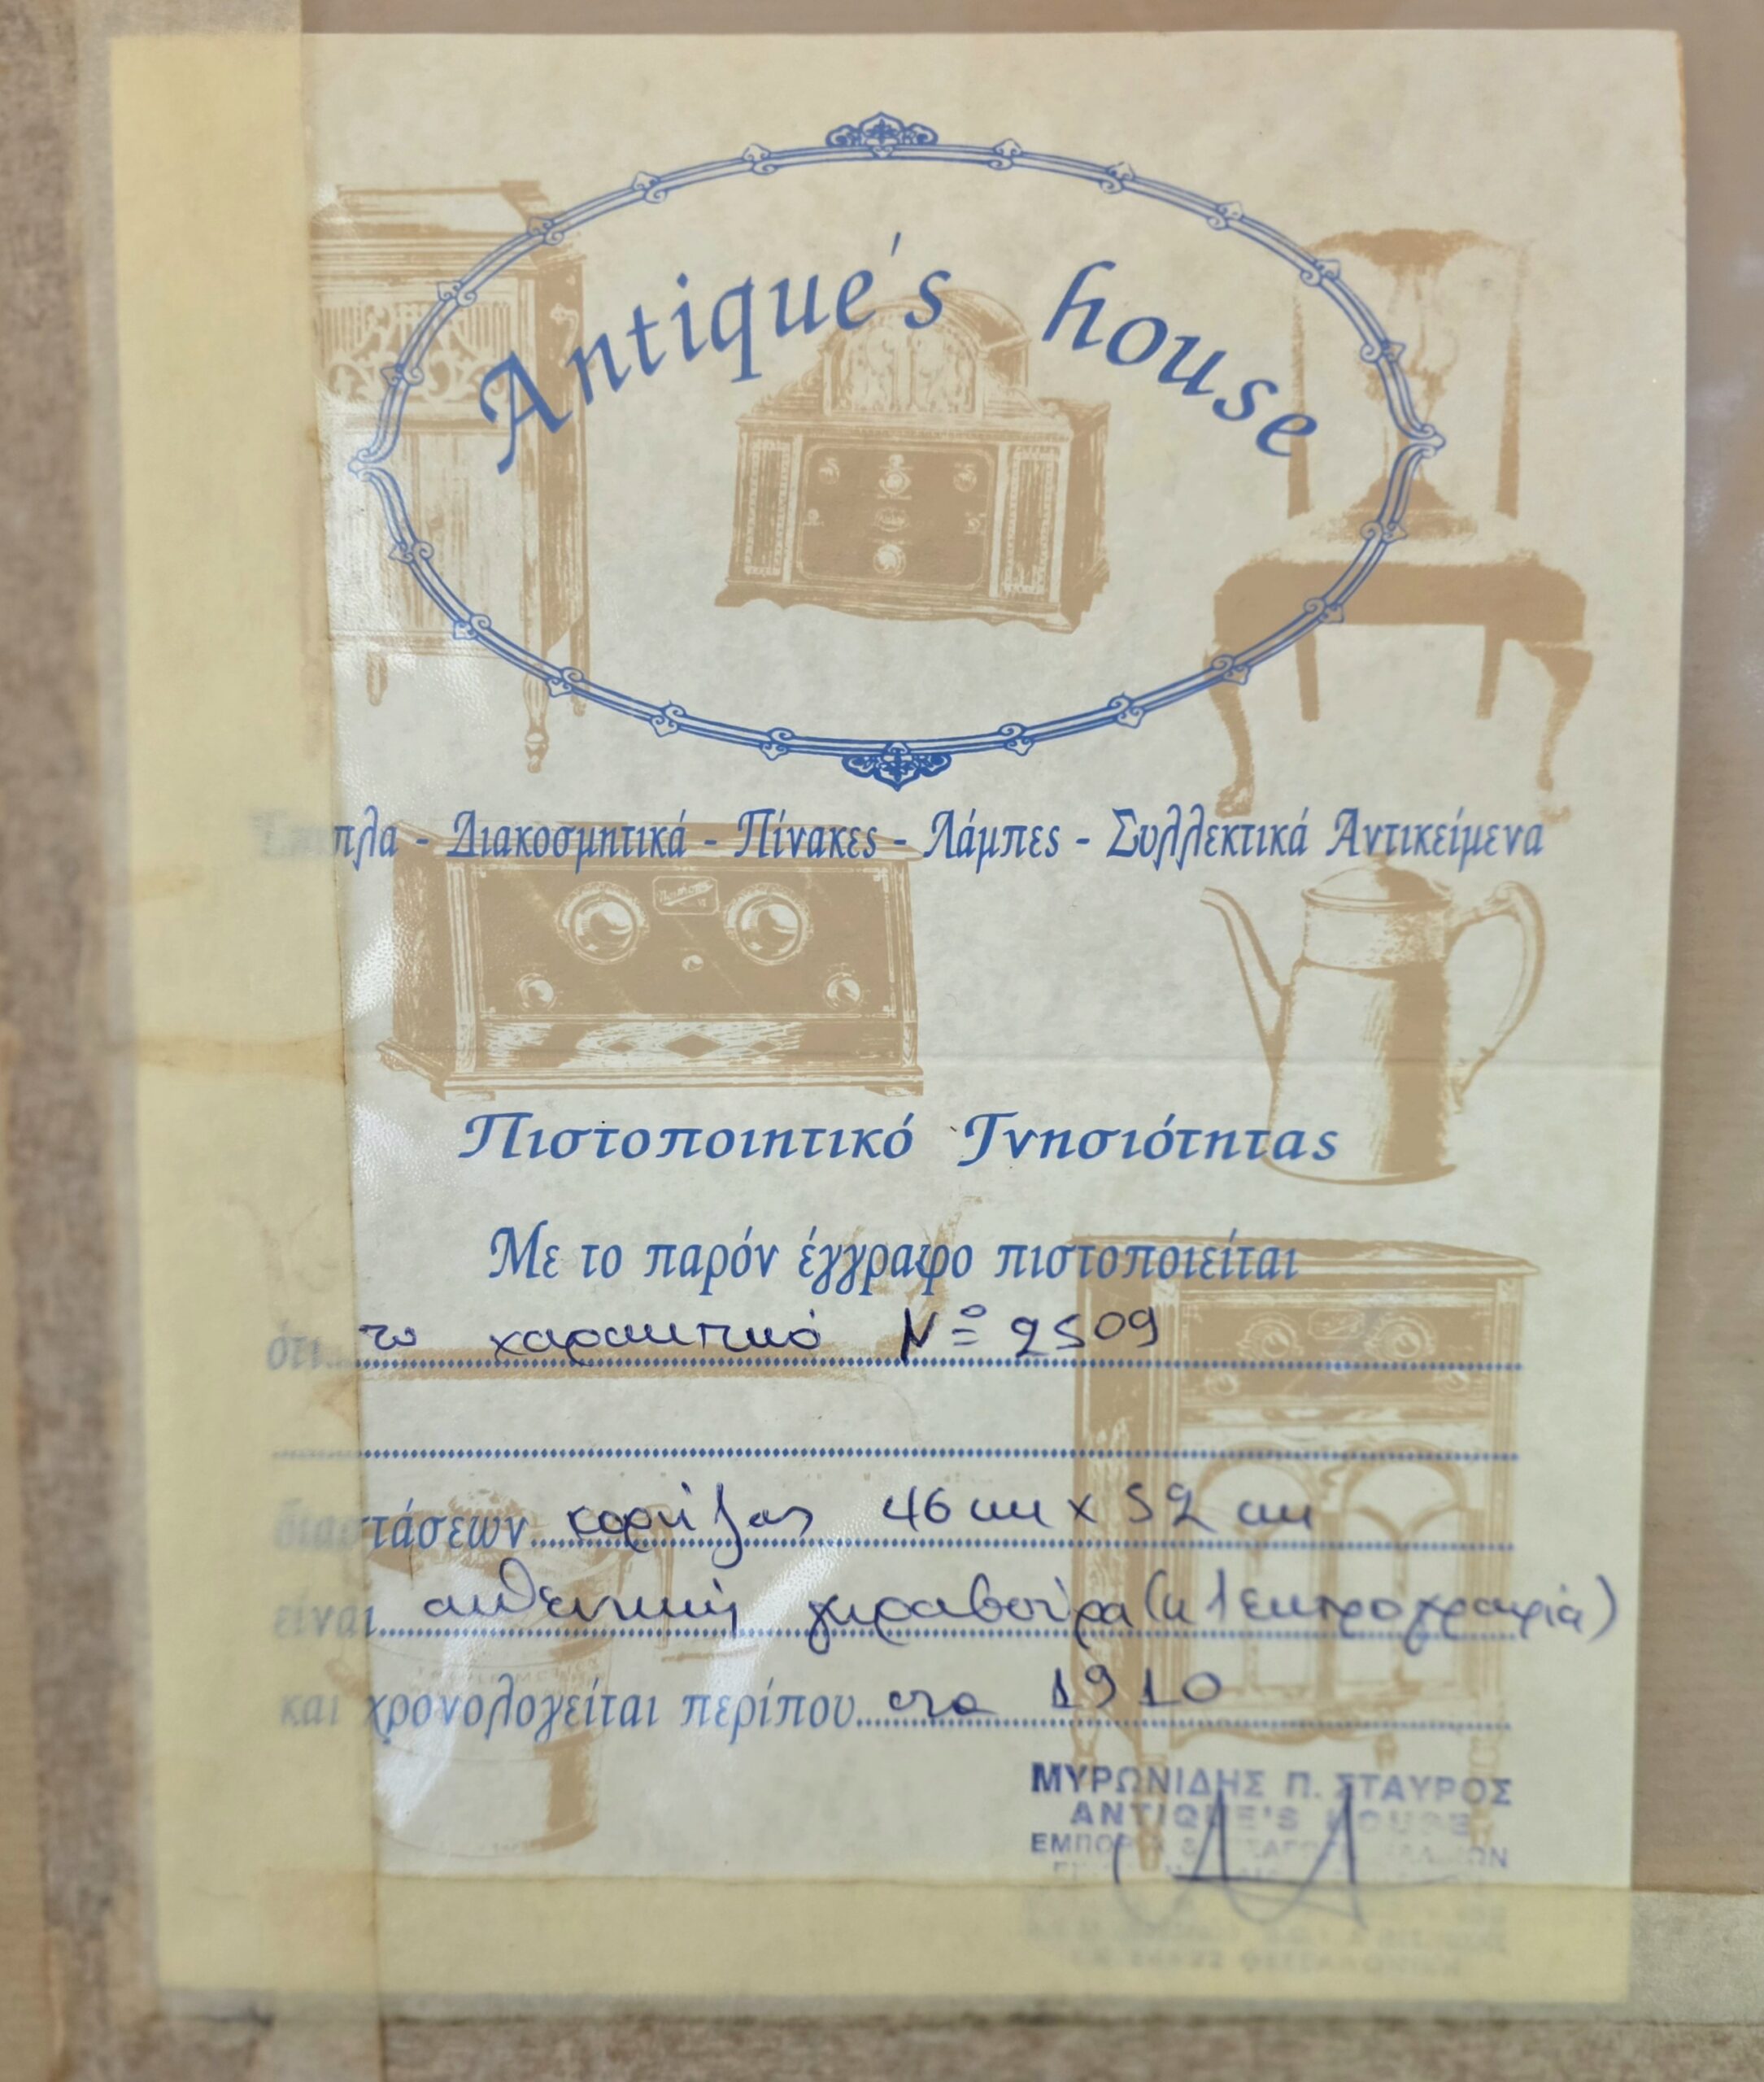 Antique's house
Έπιπλα - Διακοσμητικά - Πίνακες - Λάμπες - Συλλεκτικά Αντικείμενα
Πιστοποιητικό Γνησιότητας
Με το παρόν έγγραφο πιστοποιείται
ότι το χαρακτικό Nº 2509
διαστάσεων κορνίζας 46 cm x 52 cm
είναι αυθεντική γκραβούρα (ηλεκτρογραφία)
και χρονολογείται περίπου στα 1910
ΜΥΡΩΝΙΔΗΣ Π. ΣΤΑΥΡΟΣ
ANTIQUE'S HOUSE